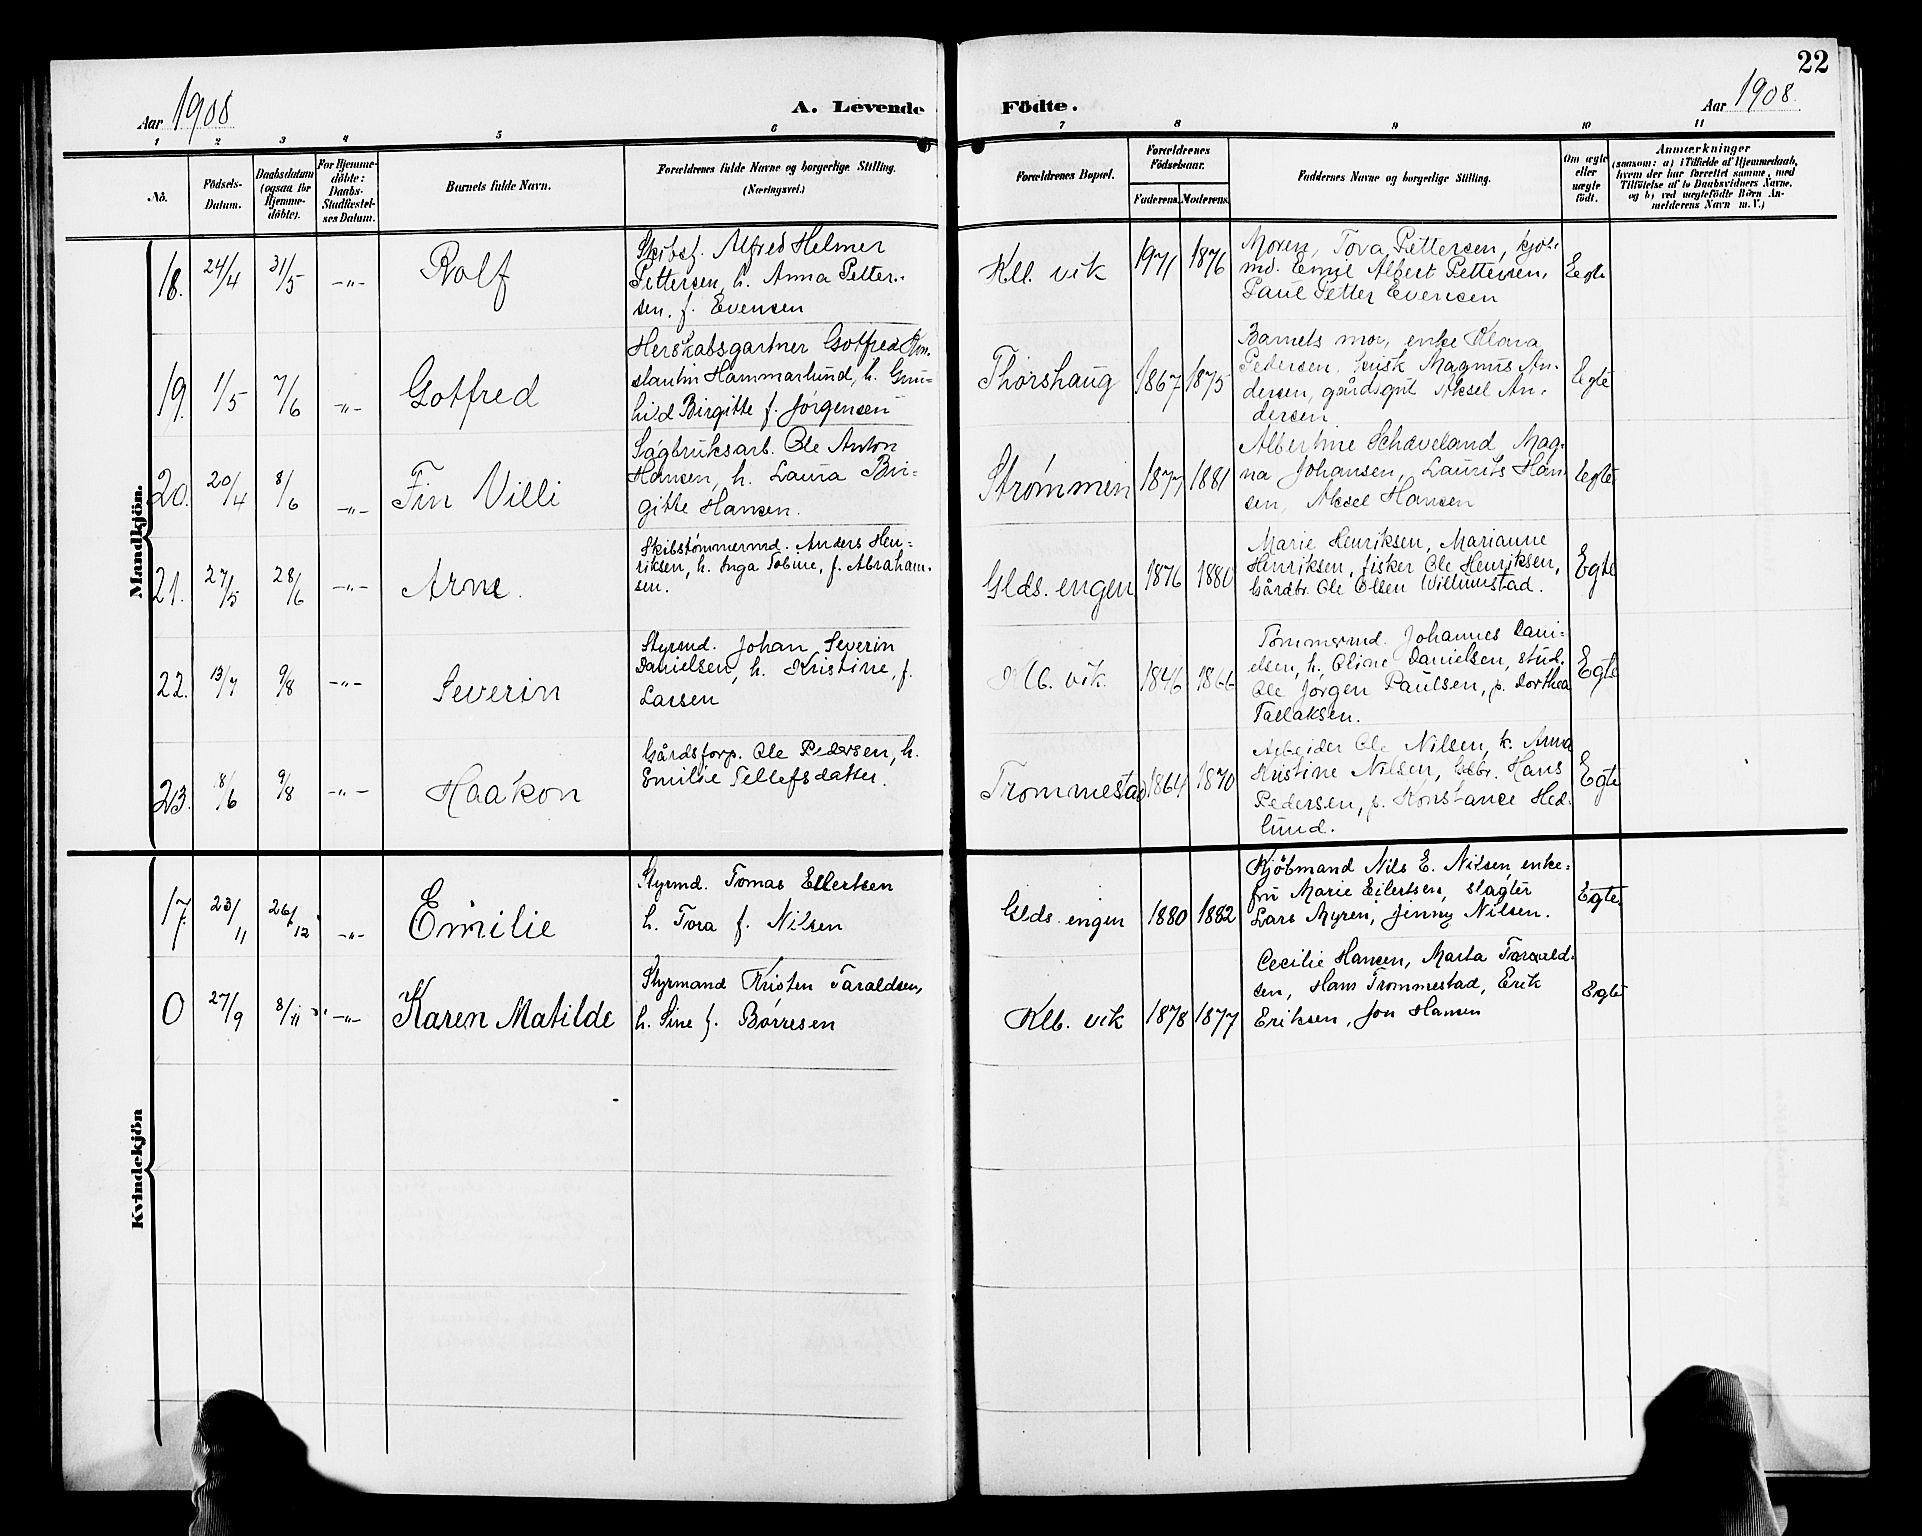 22
Aar 1908
A. Levende Födte.
Aar 1908.
1 2 3 4 5 6 7 8 9 10 11
No.
Födsels-
Datum.
Daabsdatum
(ogsaa for
Hjemme-
döbte).
For Hjemme-
döbte:
Daabs-
Stadfæstel-
ses Datum.
Barnets fulde Navn.
Forældrenes fulde Navne og borgerlige Stilling.
(Næringsvei.)
Forældrenes Bopæl.
Forældrenes
Födselsaar.
Faderens.
Moderens.
Faddernes Navne og borgerlige Stilling.
Om ægte
eller
uægte
födt.
Anmærkninger
(saasom: a) i Tilfælde af Hjemmedaab,
hvem der har forrettet samme, med
Tilföielse af to Daabsvidners Navne,
og b) ved uægtefödte Börn An-
melderens Navn m. V.)
Mandkjön.
18. 24/4 31/5 -"- Rolf
Skibsf. Alfred Helmer
Pettersen, h. Anna Petter-
sen. f. Evensen
Klb. vik 1971 1876
Moren, Tova Pettersen, kjøb-
md. Emil Albert Pettersen,
Paul Petter Evensen
Egte
19. 1/5 7/6 -"- Gotfred
Herskabsgartner Gotfred Kon-
stantin Hammarlund, h. Gun-
hild Birgitte f. Jørgensen
Thorshaug 1867 1875
Barnets mor, enke Klara
Pedersen, kusk Magnus An-
dersen, gårdsgut Aksel An-
dersen
Egte
20. 20/4 8/6 -"- Fin Villi
Sagbruksarb. Ole Anton
Hansen, h. Laura Bir-
gitte Hansen.
Strømmen 1877 1881
Albertine Schaveland, Mag-
na Johansen, Laurits Han-
sen, Aksel Hansen
Egte
21. 27/5 28/6 -"- Arne.
Skibstømmermd. Anders Hen-
riksen, h. Inga Tobine, f. Abraham-
sen.
Glds. engen 1876 1880
Marie Henriksen, Marianne
Henriksen, fisker Ole Henriksen,
Gårdbr. Ole Olsen Willumstad.
Egte
22. 13/7 9/8 -"- Severin
Styrmd. Johan Severin
Danielsen, h. Kristine, f.
Larsen
Klb. vik. 1846 1866
Tømmermd. Johannes Dani-
elsen, h. Oline Danielsen, stud.
Ole Jørgen Paulsen, p. Dorthea
Tallaksen.
Egte
23. 8/6 9/8 -"- Haakon
Gårdsforp. Ole Pedersen, h.
Emilie Tellefsdatter.
Trommestad 1864 1870
Arbeider Ole Nilsen, k. Anna
Kristine Nilsen, Gdbr. Hans
Pedersen, p. Konstance Hed-
lund.
Egte
Kvindekjön
17. 23/11 26/12 -"- Emilie
Styrmd. Tomas Ellertsen
h. Tora f. Nilsen
Glds. engen 1880 1882
Kjøbmand Nils E. Nilsen, enke-
fru Marie Eilertsen, slagter
Lars Myren, Jenny Nilsen.
Egte
0 27/9 8/11 -"- Karen Matilde
Styrmand Kristen Taraldsen,
h. Sine f. Børresen
Klb. vik 1878 1877
Cecilie Hansen, Marta Tarald-
sen, Hans Trommestad, Erik
Eriksen, Jon Hansen
Egte